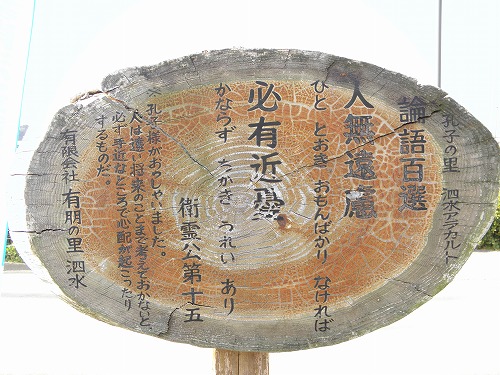 孔子の里 泗水アラカルト
論語百選
人無遠慮
ひと とおき おもんぱかり なければ
必有近憂
かならず ちかき うれい あり
衛霊公第十五
孔子様がおっしゃいました。
人は遠い将来のことまで考えておかないと、
必ず手近なところで心配が起こったり
するものだ。
有限会社 有朋の里 泗水